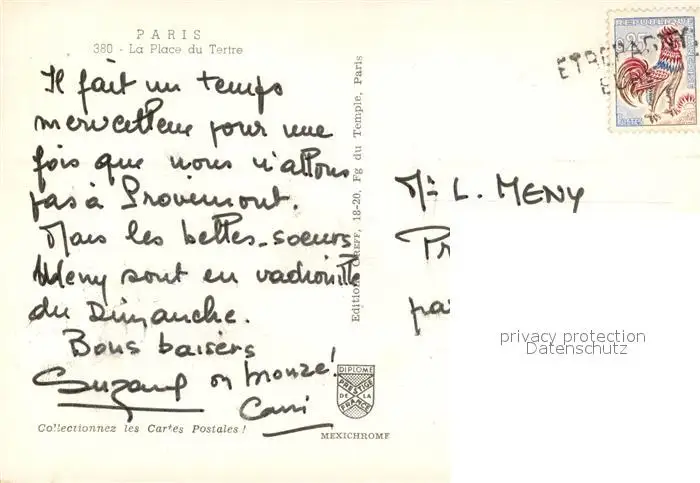 PARIS
380 - La Place du Tertre
Il fait un temps
merveilleux pour une
fois que nous n'allons
pas à Provemont.
Mais les belles-soeurs
Meny sont en vadrouille
du Dimanche.
Bons baisers
Suzanne on bronze!
Collectionnez les Cartes Postales !
18-20, Fg du Temple, Paris
DIPLOME
PRESTIGE
DE LA
FRANCE
MEXICHROME
REPUBLIQUE
0,25
ETREPAGNY
EURE
L. MENY
Pr
pa
privacy protection
Datenschutz